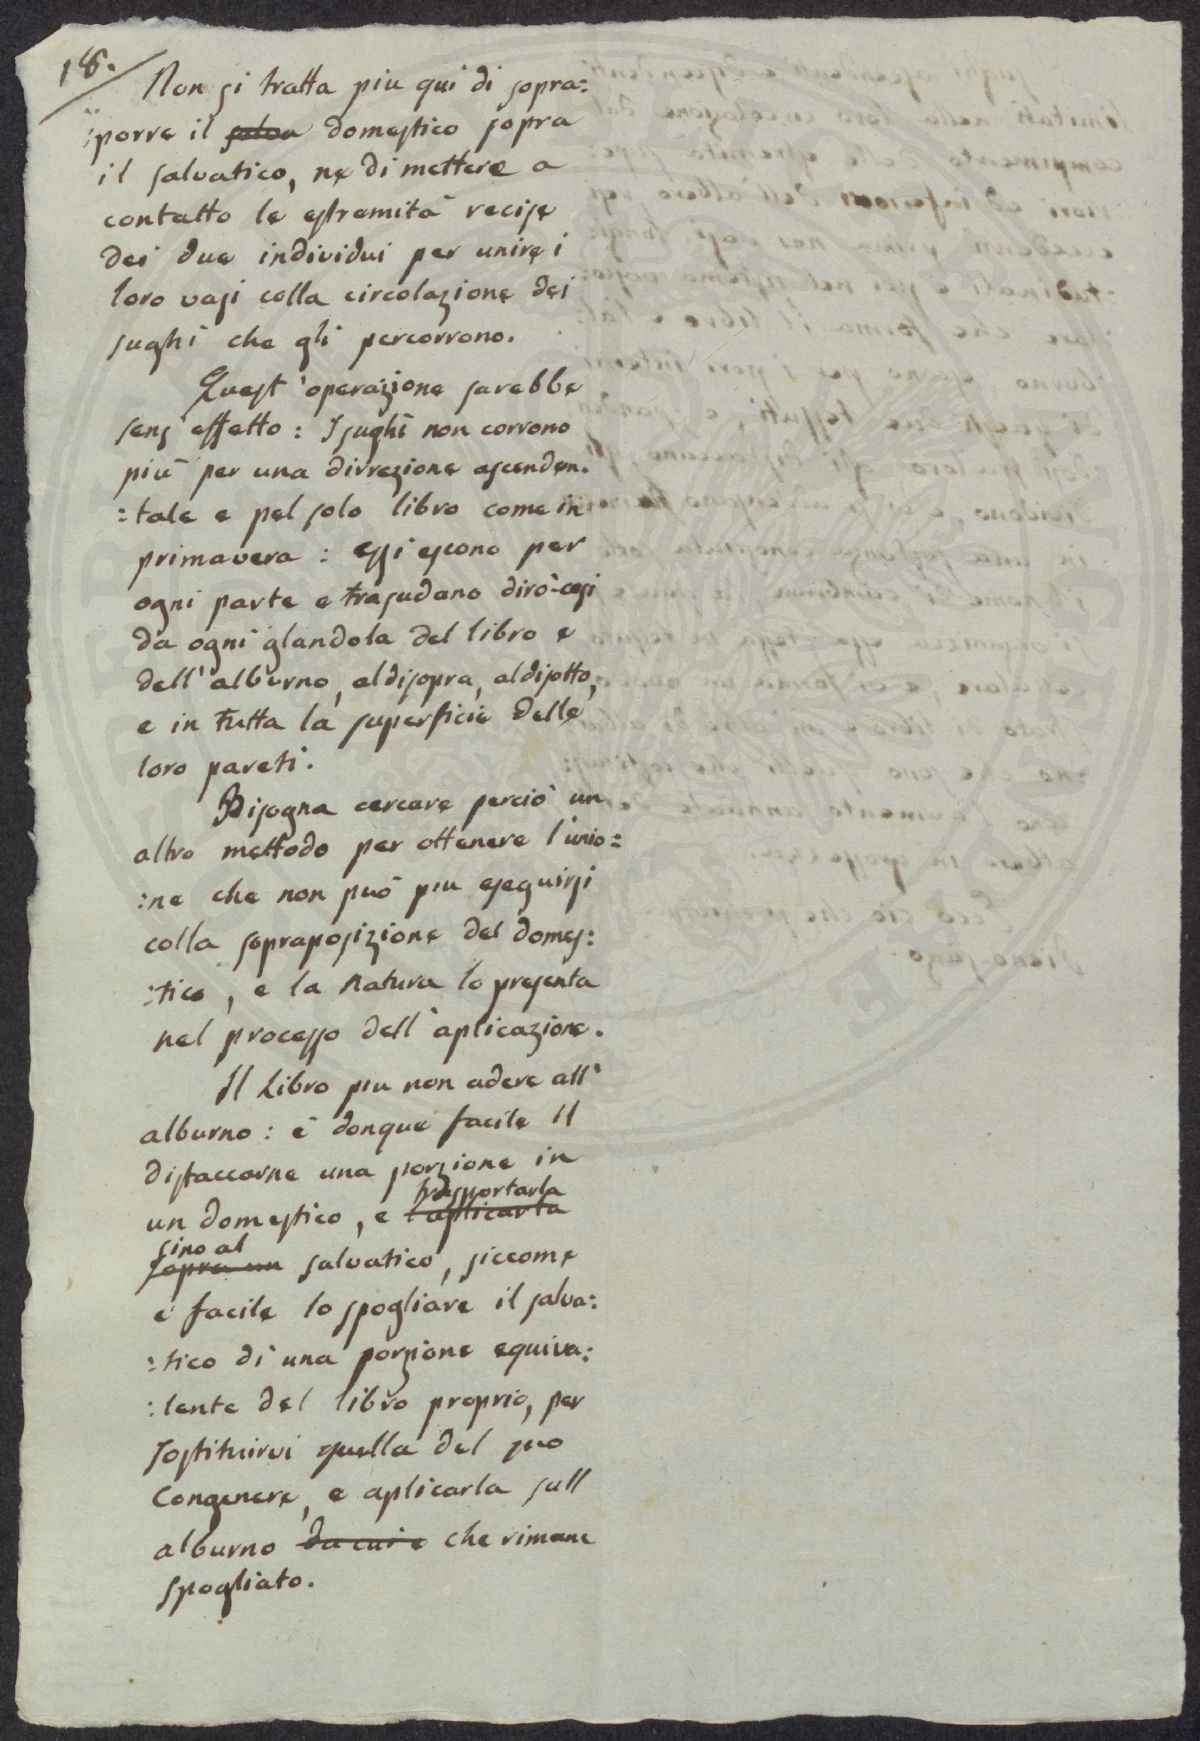 18.
Non si tratta piu qui di sopra:
:porre il salva domestico sopra
il salvatico, ne di mettere a
contatto le estremità recise
dei due individui per unire i
loro vasi colla circolazione dei
sughi che gli percorrono.
Quest'operazione sarebbe
senz'effetto: I sughi non corrono
più per una dirrezione ascenden:
:tale e pel solo libro come in
primavera: essi escono per
ogni parte e trasudano dirò così
da ogni glandola del libro e
dell'alburno, aldisopra, aldisotto,
e in tutta la superficie delle
loro pareti.
Bisogna cercare perciò un
altro mettodo per ottenere l'unio:
:ne che non può piu eseguirsi
colla sopraposizione del domes:
:tico, e la natura lo presenta
nel processo dell'aplicazione.
Il Libro piu non adere all'
alburno: è donque facile il
distaccarne una porzione in
un domestico, e l'aplicarla trasportarla
sopra un sino al salvatico, siccome
è facile lo spogliare il salva:
:tico di una porzione equiva:
:lente del libro proprio, per
sostituirvi quella del suo
Congenere, e aplicarla sull
alburno da cui è che rimane
spogliato.